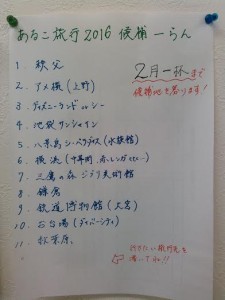 あるこ旅行2016 候補一らん
1 秩父
2 アメ横(上野)
3 ディズニーランド or シー
4 池袋サンシャイン
5 八景島シーパラダイス(水族館)
6 横浜(中華街、赤レンガ etc…)
7 三鷹の森 ジブリ美術館
8 鎌倉
9 鉄道博物館(大宮)
10 お台場(ダイバーシティ)
11 秋葉原
2月一杯まで
候補地を募ります!
行きたい旅行先を
書いてね!!